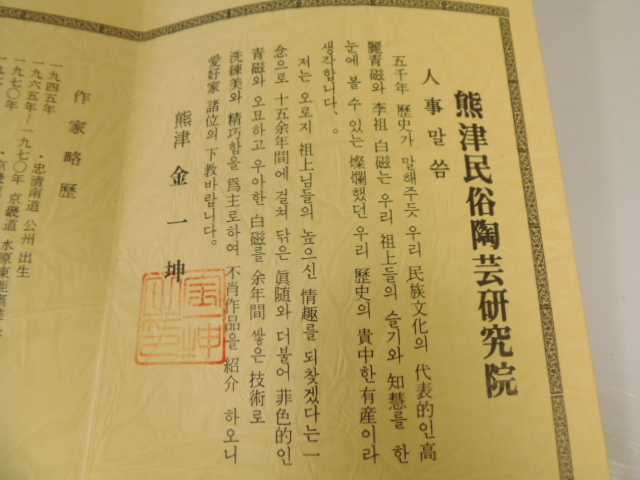 熊津民俗陶芸研究院
人事말씀
五千年 歷史가 말해주듯 우리 民族文化의 代表的인 高
麗青磁와 李祖 白磁는 우리 祖上들의 슬기와 知慧를 한
눈에 볼 수 있는 燦爛했던 우리 歷史의 貴中한 有産이라
생각합니다.
저는 오로지 祖上님들의 높으신 情趣를 되찾겠다는 一
念으로 十五余年間에 걸쳐 닦은 眞随와 더불어 菲色的인
青磁와 오묘하고 우아한 白磁를 余年間 쌓은 技術로
洗練美와 精巧함을 爲主로하여 不肖作品을 紹介 하오니
愛好家 諸位의 下教바랍니다。
熊津 金 一 坤
作家略歷
一九四五年 ・忠清南道 公州 出生
一九六五年/一九七〇年 京畿道 水原東亜窯業
一九七〇年